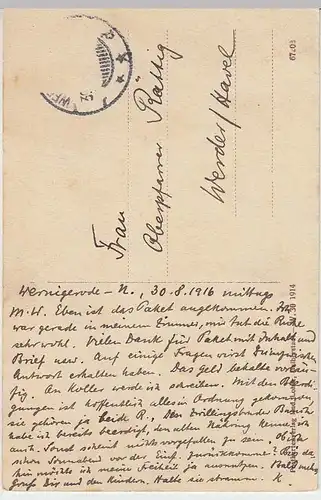 Frau
Oberpfarrer Rättig
Werder/Havel
67.05
1914
Wernigerode - N., 30.8.1916 mittags
M. W. Eben ist das Paket angekommen. Ich
war gerade in meinem Zimmer, mir tut die Ruhe
sehr wohl. Vielen Dank für Paket mit Inhalt und
Brief usw. Auf einige Fragen wirst Du inzwischen
Antwort erhalten haben. Das Geld behalte vorläu-
fig. An Koller werde ich schreiben. Mit den Beerdi-
gungen ist hoffentlich alles in Ordnung gekommen,
sie gehören ja beide R.,
habe ich bereits beerdigt, den alten Nähring kenne ich
auch. Sonst scheint nichts vorgefallen zu sein. Ob ich
schon Sonnabend vor der Einf. zurückkomme? Bis da-
hin möchte ich meine Freiheit ja ausnutzen. Bald mehr.
Gruß Dir und den Kindern. Halte sie stramm. K.